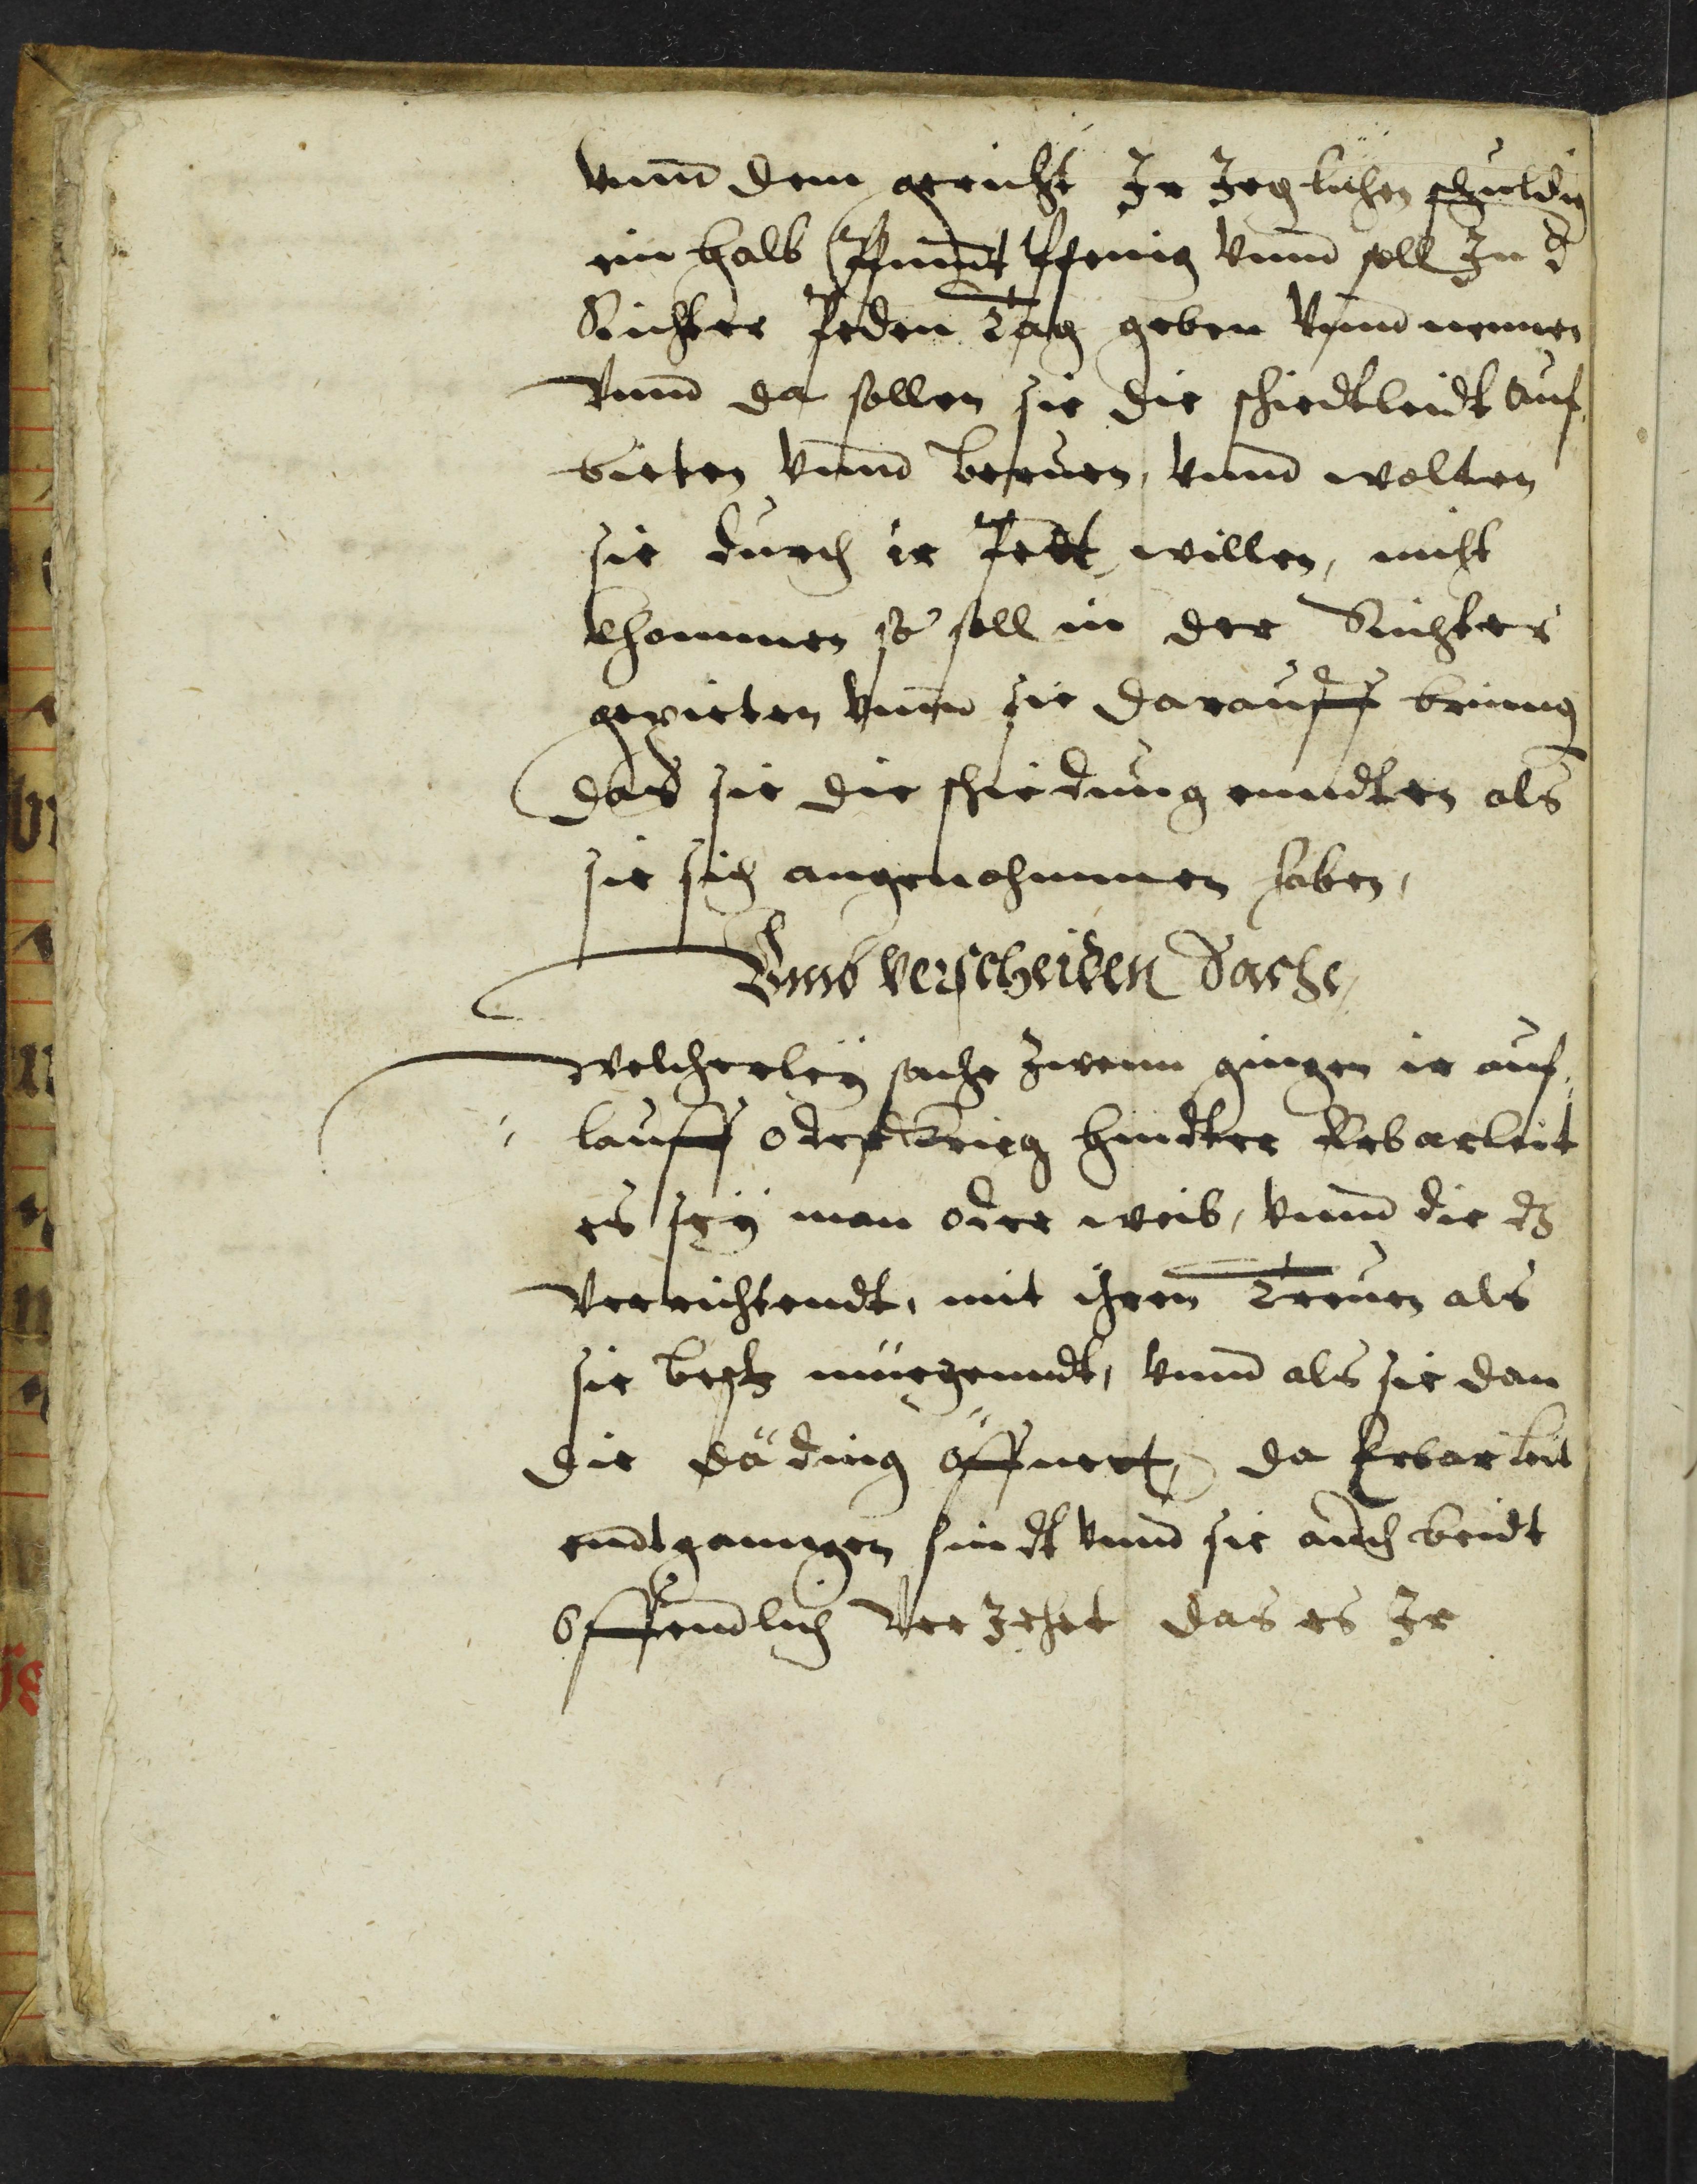 vnnd dem gericht Ir Jeglicher schuldig
ein halb Pfunndt Pfenig vnnd soll In d
Richter Jeden Tag geben vnnd nennen
vnnd da sollen sie die schiedtleidt auf
bieten vnnd beruen, vnnd wolten
sie durch ir Pett willen, nicht
khommen so soll in der Richter
gepieten vnnd sie darauff bring
das sie die schiedung enndten als
sie sich angenohmmen haben,
Vmb verscheiden Sache,
Welcherley sache zwenn gingen ir auf
lauff oder krieg hindter Erbarleit
es sey man oder weib, vnnd die dz
verrichtendt, mit ihren Treuen als
sie best mügenndt, vnnd als sie dan
die däding öffnett, da Erbarleit
endtganngen sindt vnnd sie auch beidt
öffendlich verzehet das es Ir